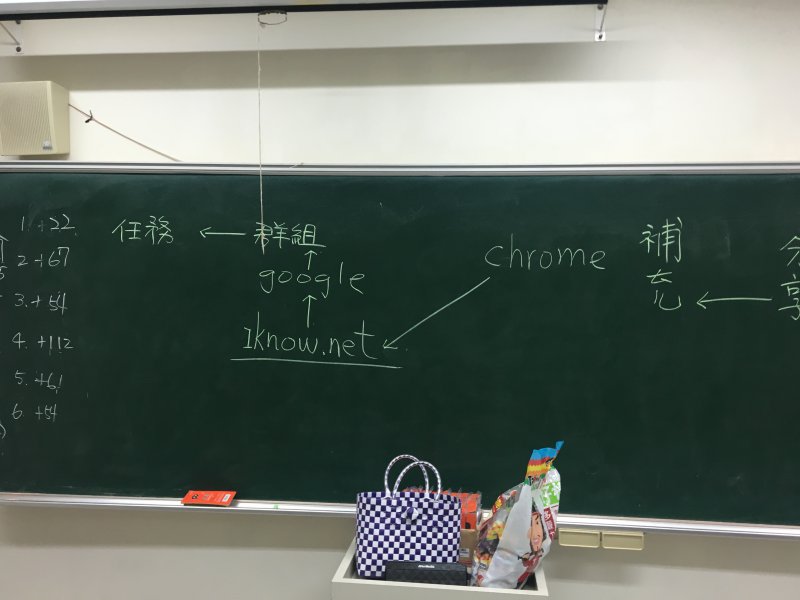 1. +22
2. +67
3. +54
4. +112
5. +61
6. +54
任務 ← 群組
↑
google
↑
1know.net
chrome
補充 ← 分享